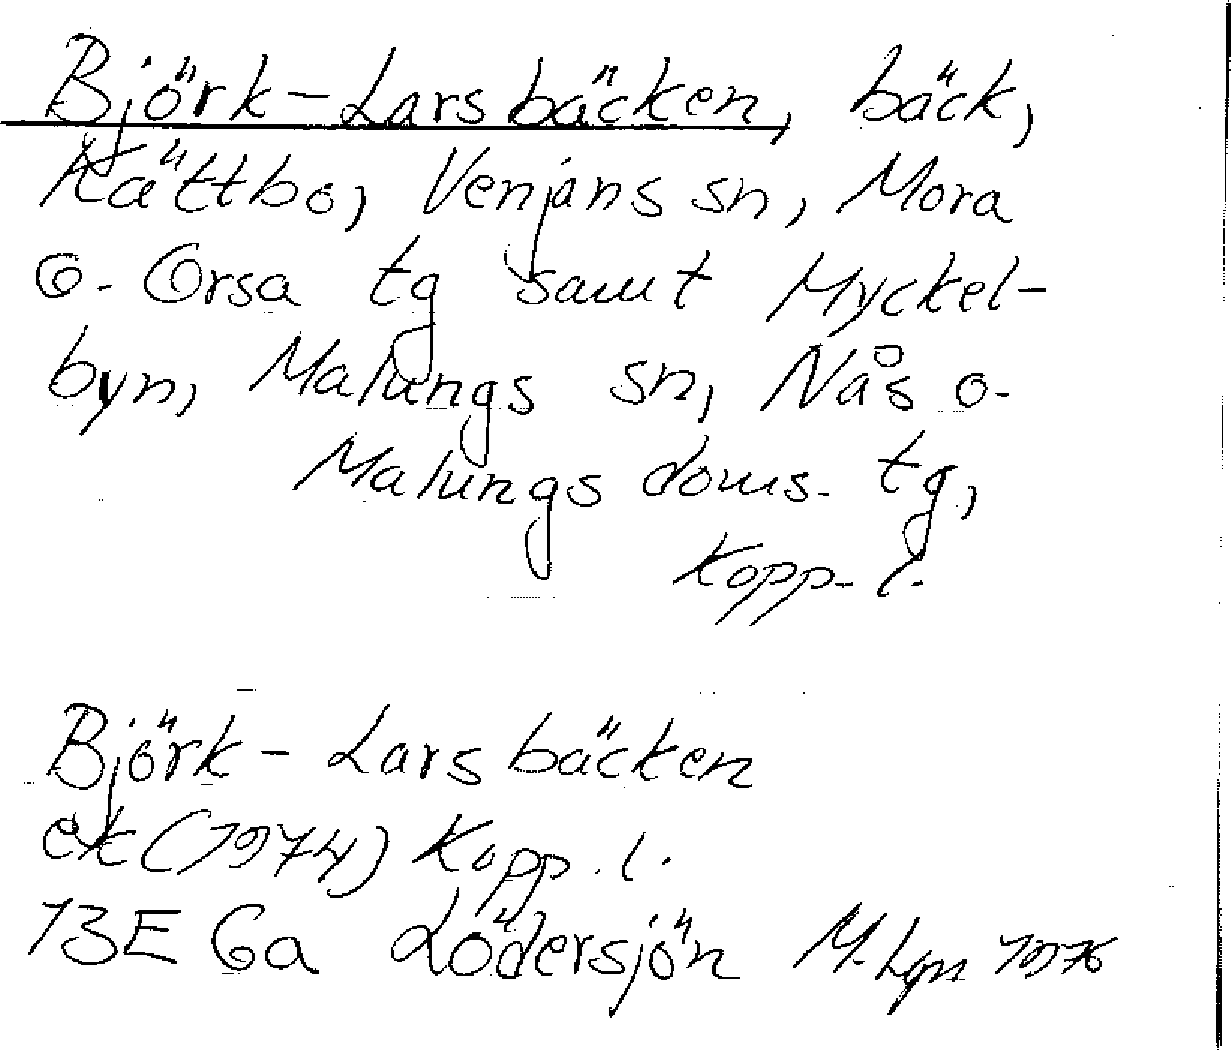 Björk-Lars bäcken, bäck,
Kättbo, Venjans sn, Mora
o. Orsa tg samt Myckel-
byn, Malungs sn, Nås o.
Malungs doms. tg,
Kopp. l.
Björk-Lars bäcken
ek (1974) Kopp. l.
13E 6a Lödersjön M. Lgn 1976